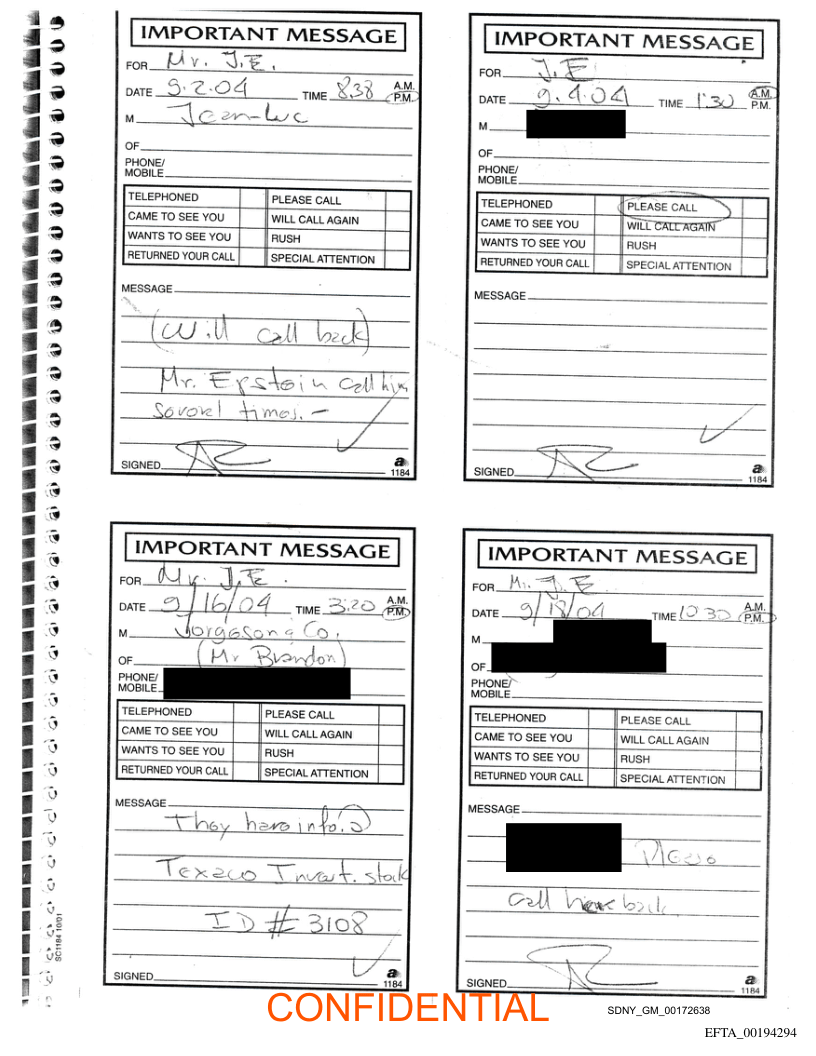 IMPORTANT MESSAGE
FOR Mr. J.E.
DATE 9.2.04 TIME 8.38 A.M. P.M.
M Jean-Luc
OF
PHONE/
MOBILE
TELEPHONED PLEASE CALL
CAME TO SEE YOU WILL CALL AGAIN
WANTS TO SEE YOU RUSH
RETURNED YOUR CALL SPECIAL ATTENTION
MESSAGE
(Will call back)
Mr. Epstein call him
soverel times. -
SIGNED
a
1184
IMPORTANT MESSAGE
FOR J.E.
DATE 9.4.04 TIME 1:30 A.M. P.M.
M
OF
PHONE/
MOBILE
TELEPHONED PLEASE CALL
CAME TO SEE YOU WILL CALL AGAIN
WANTS TO SEE YOU RUSH
RETURNED YOUR CALL SPECIAL ATTENTION
MESSAGE
SIGNED
a
1184
IMPORTANT MESSAGE
FOR Mr. J.E.
DATE 9/16/04 TIME 3:20 A.M. P.M.
M Co.
OF (Mr Brandon)
PHONE/
MOBILE
TELEPHONED PLEASE CALL
CAME TO SEE YOU WILL CALL AGAIN
WANTS TO SEE YOU RUSH
RETURNED YOUR CALL SPECIAL ATTENTION
MESSAGE
They have info.
Texaco Invest. stock
ID # 3108
SIGNED
a
1184
IMPORTANT MESSAGE
FOR Mr. J.E
DATE 9/18/04 TIME 10:30 A.M. P.M.
M
OF
PHONE/
MOBILE
TELEPHONED PLEASE CALL
CAME TO SEE YOU WILL CALL AGAIN
WANTS TO SEE YOU RUSH
RETURNED YOUR CALL SPECIAL ATTENTION
MESSAGE
Please
call back.
SIGNED
a
1184
SC1184 10/01
CONFIDENTIAL
SDNY_GM_00172638
EFTA_00194294